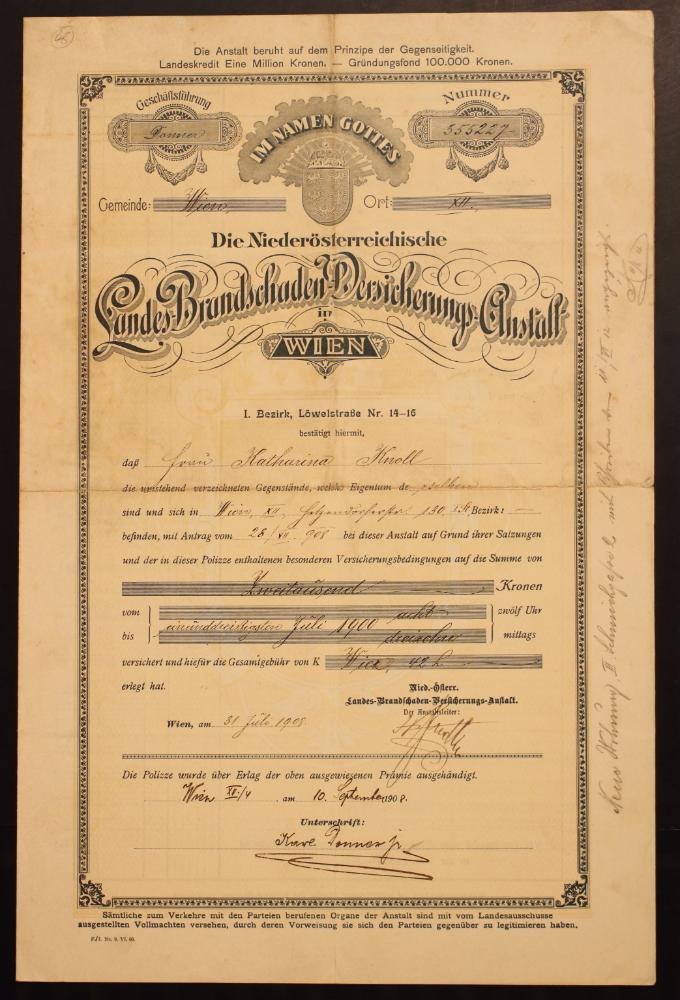 Die Anstalt beruht auf dem Prinzipe der Gegenseitigkeit.
Landeskredit Eine Million Kronen. — Gründungsfond 100.000 Kronen.
Geschäftsführung
Donner
IM NAMEN GOTTES
Nummer
355227
Gemeinde: Wien
Ort: XII.
Die Niederösterreichische
Landes-Brandschaden-Versicherungs-Anstalt
in
WIEN
I. Bezirk, Löwelstraße Nr. 14–16
bestätigt hiermit,
daß Frau Katharina Knoll
die umstehend verzeichneten Gegenstände, welche Eigentum derselben
sind und sich in Wien, XII, 130, Bezirk: —
befinden, mit Antrag vom 28/VII. 908 bei dieser Anstalt auf Grund ihrer Satzungen
und der in dieser Polizze enthaltenen besonderen Versicherungsbedingungen auf die Summe von
Zweitausend Kronen
vom acht zwölf Uhr
einunddreißigsten Juli 1900
bis mittags
versichert und hiefür die Gesamtgebühr von K
erlegt hat.
Nied.-Österr.
Landes-Brandschaden-Versicherungs-Anstalt.
Der Anstaltsleiter:
Wien, am 31 Juli 1908
Die Polizze wurde über Erlag der oben ausgewiesenen Prämie ausgehändigt.
Wien XII/4 am 10. September 1908.
Unterschrift:
Karl Donner jr
Sämtliche zum Verkehre mit den Parteien berufenen Organe der Anstalt sind mit vom Landesausschusse
ausgestellten Vollmachten versehen, durch deren Vorweisung sie sich den Parteien gegenüber zu legitimieren haben.